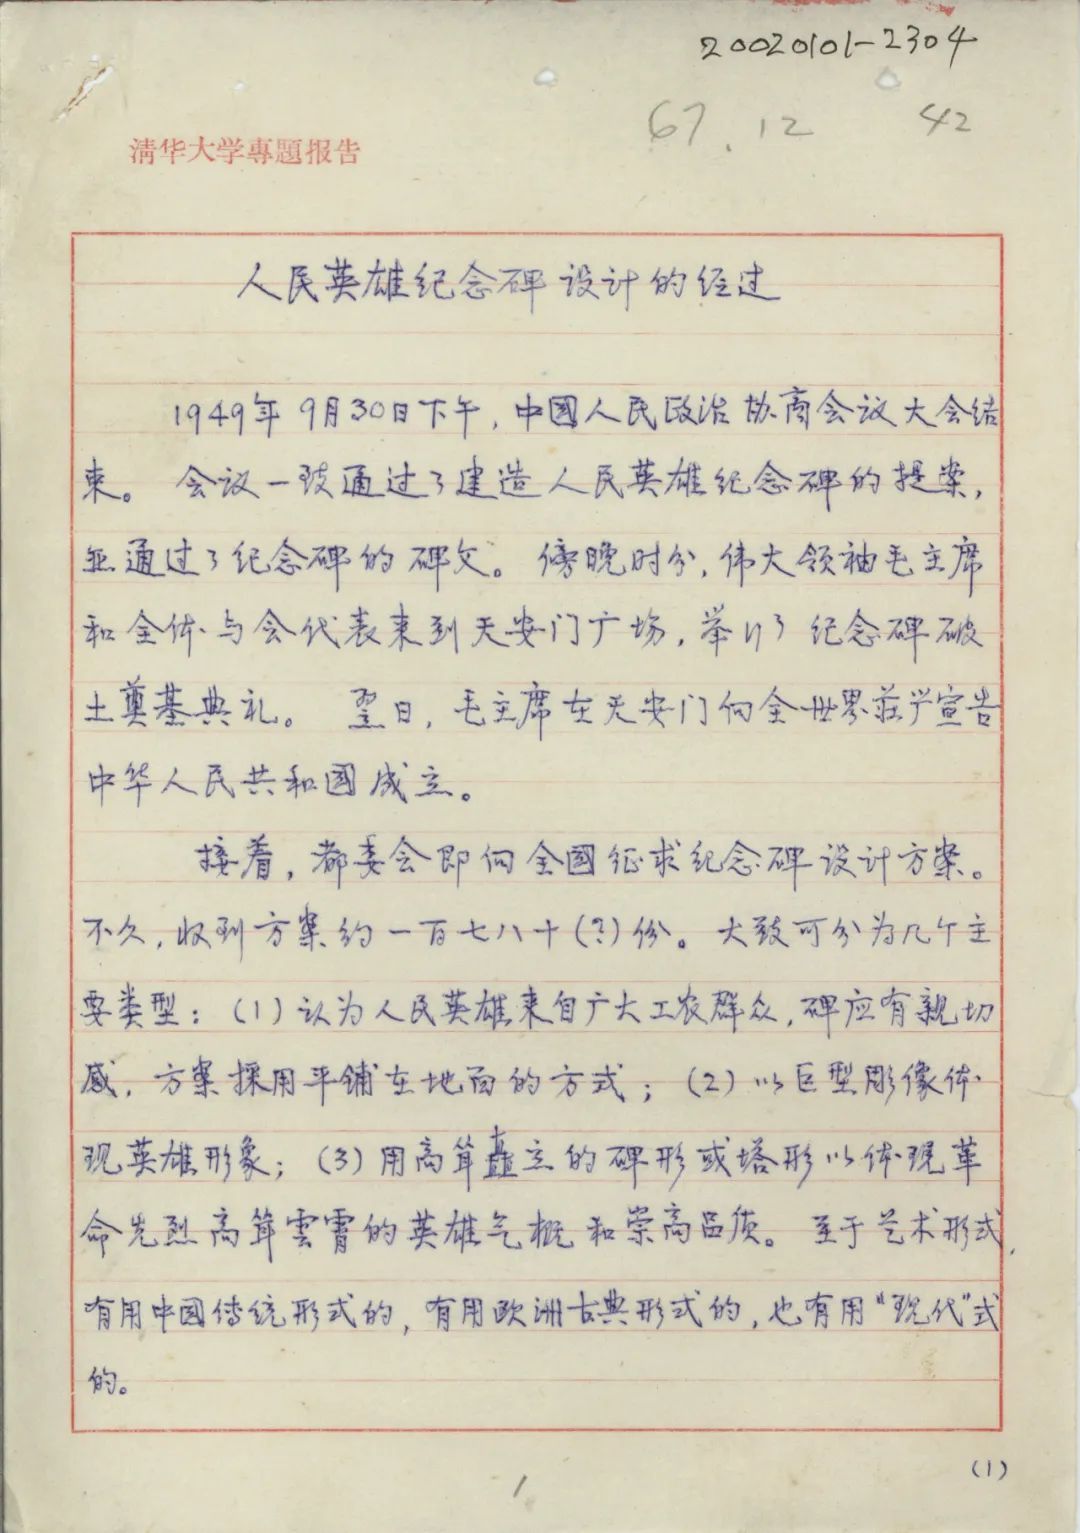 20020101-2304
67.12 42
清华大学專題报告
人民英雄纪念碑设计的经过
1949年9月30日下午，中國人民政治协商会议大会结
束。会议一致通过了建造人民英雄纪念碑的提案，
并通过了纪念碑的碑文。傍晚时分，伟大领袖毛主席
和全体与会代表来到天安门广场，举行了纪念碑破
土奠基典礼。翌日，毛主席在天安门向全世界莊严宣告
中华人民共和國成立。
接着，都委会即向全國征求纪念碑设计方案。
不久，收到方案约一百七八十(?)份。大致可分为几个主
要类型：(1)认为人民英雄来自广大工农群众，碑应有親切
感，方案採用平铺在地面的方式；(2)以巨型彫像体
现英雄形象；(3)用高耸矗立的碑形或塔形以体现革
命先烈高耸雲霄的英雄气概和崇高品质。至于艺术形式，
有用中國传统形式的，有用欧洲古典形式的，也有用“现代”式
的。
(1)
1